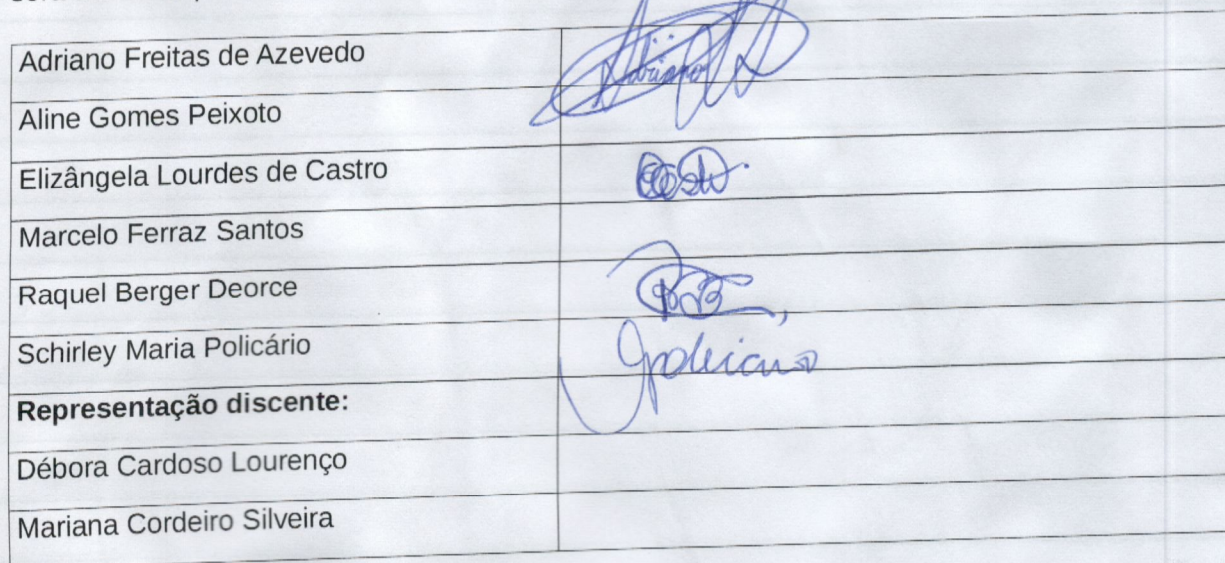 Adriano Freitas de Azevedo Adriano
Aline Gomes Peixoto
Elizângela Lourdes de Castro
Marcelo Ferraz Santos
Raquel Berger Deorce
Schirley Maria Policário
Representação discente:
Débora Cardoso Lourenço
Mariana Cordeiro Silveira